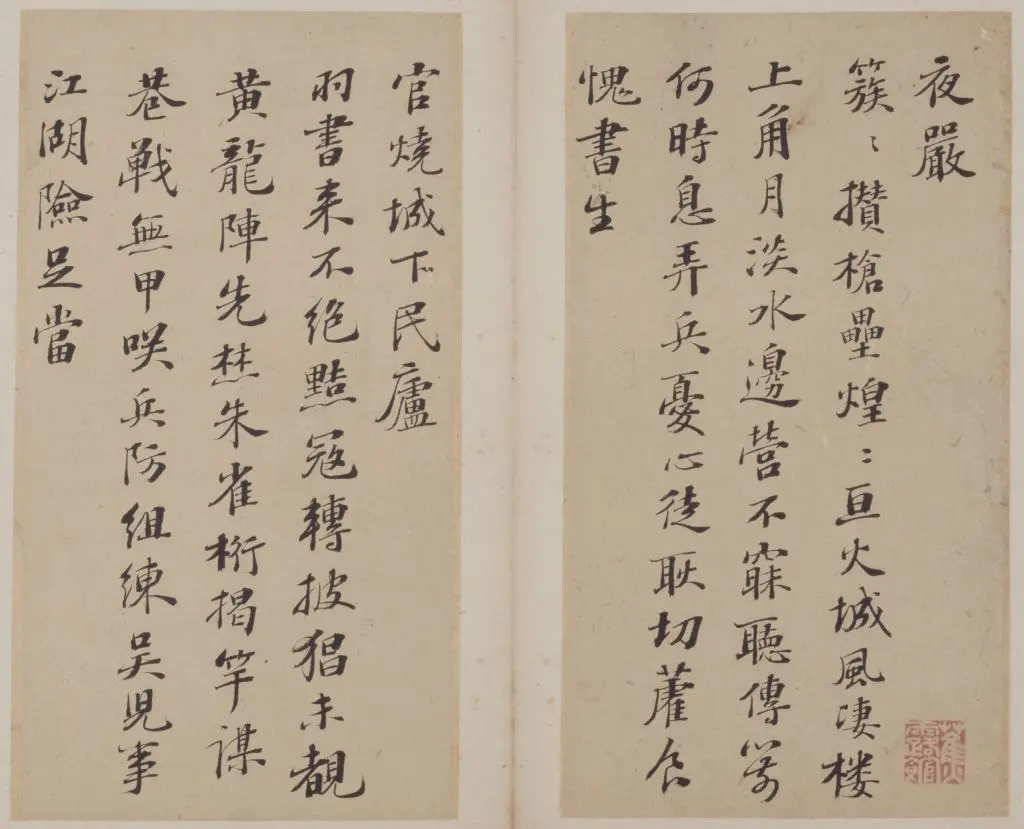 夜嚴
簇〻攢槍壘煌〻亘火城風凄楼
上角月淡水邊营不寐聴傳箭
何時息弄兵憂心徒耿切藿食
愧書生
官燒城下民廬
羽書来不絶黠冦轉披猖未覩
黄龍陣先焚朱雀桁揭竿謀
巷戰無甲咲兵防組練吴児事
江湖險足當